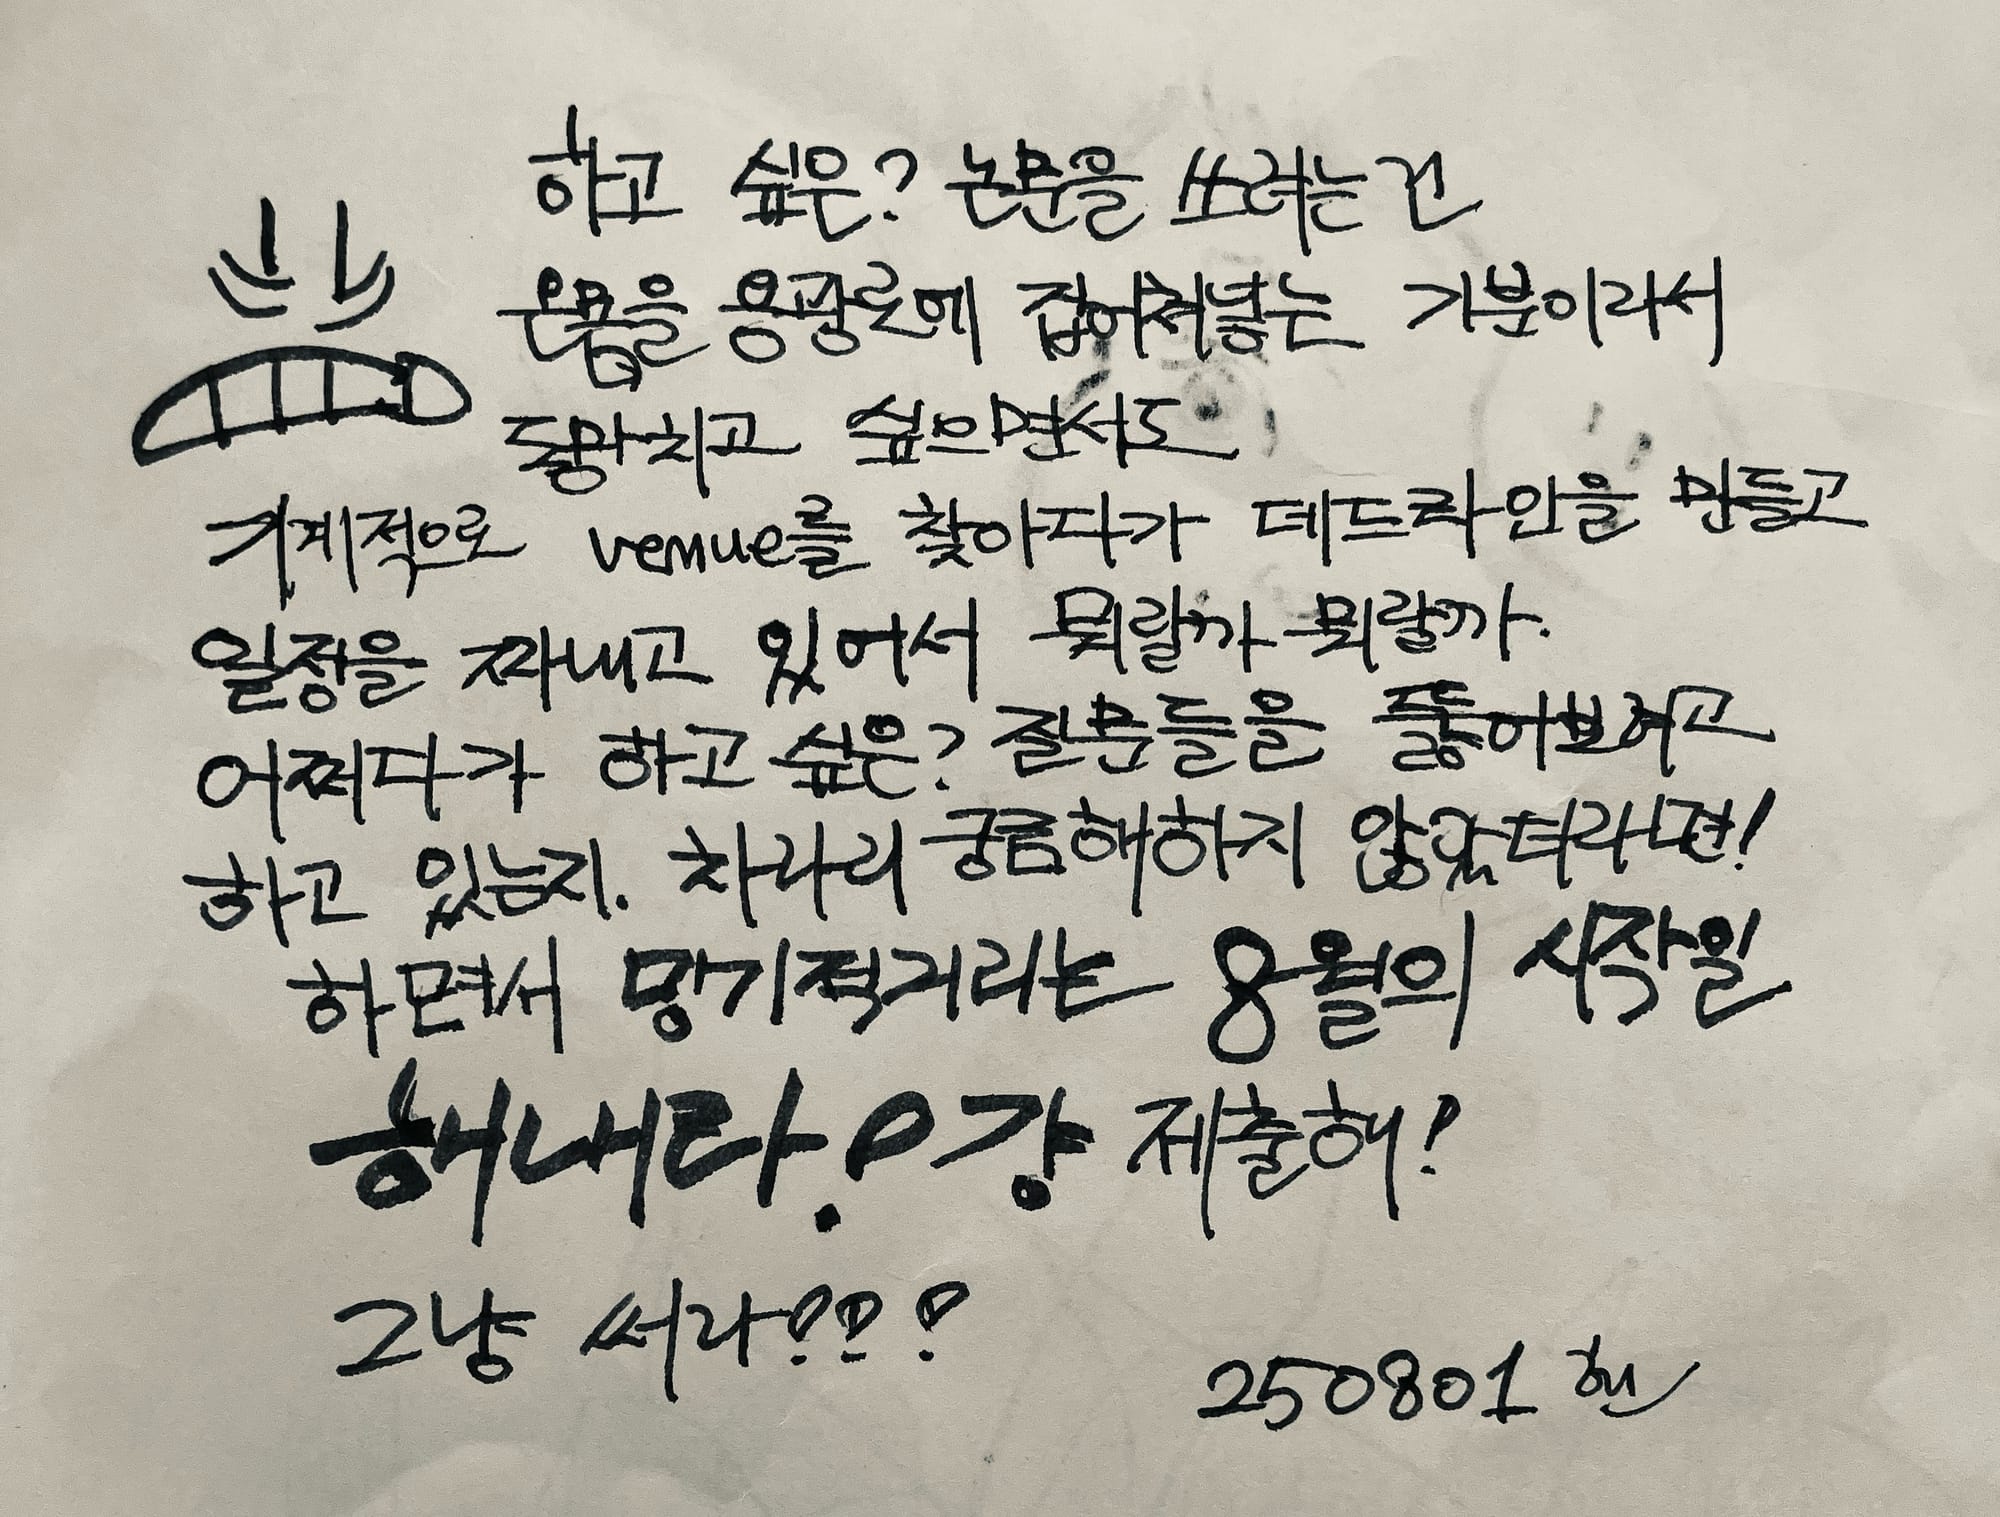 하고 싶은? 논문을 쓰려는건
온몸을 용광로에 집어쳐넣는 기분이라서
도망치고 싶으면서도
기계적으로 venue를 찾아다가 데드라인을 만들고
일정을 짜내고 있어서 뭐랄까 뭐랄까.
어쩌다가 하고 싶은? 질문들을 뚫어보려고
하고 있는지. 차라리 궁금해하지 않았더라면!
하면서 밍기적거리는 8월의 시작일
해내라! 걍 제출해!
그냥 써라!!!
250801